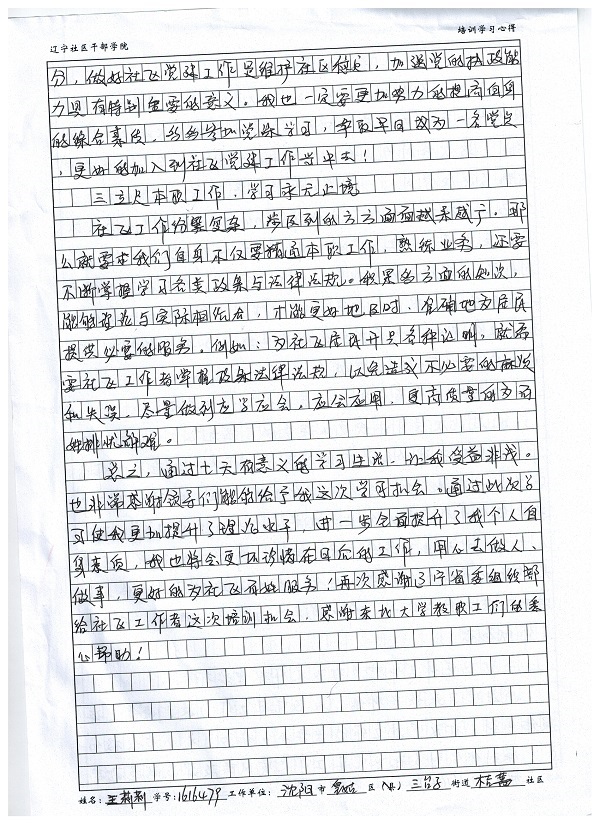 辽宁社区干部学院 培训学习心得
分，做好社区党建工作是维护社区稳定，加强党的执政能
力具有特别重要的意义。我也一定要更加努力的提高自身
的综合素质，积极参加党课学习，争取早日成为一名党员
，更好的加入到社区党建工作当中去！
三立足本职工作，学习永无止境
社区工作纷繁复杂，涉及到的方方面面越来越广。那
么就要求我们自身不仅要精通本职工作，熟练业务，还要
不断掌握学习各类政策与法律法规。积累多方面的知识，
能够理论与实际相结合，才能更好地及时、准确地为居民
提供必要的服务。例如：为社区居民开具各种证明，就需
要社区工作者掌握政策法律法规，以免造成不必要的麻烦
和失误。尽量做到应学应会，应会应用，更高质量的为百
姓排忧解难。
总之，通过七天有意义的学习生活，让我受益非浅。
也非常感谢领导们能够给予我这次学习机会。通过此次学
习使我更加提升了理论水平，进一步全面提升了我个人自
身素质，我也将会更加珍惜在日后的工作，用心去做人、
做事，更好的为社区百姓服务！再次感谢辽宁省委组织部
给社区工作者这次培训机会，感谢东北大学教职工们的悉
心帮助！
姓名：王莉莉 学号：1616479 工作单位：沈阳市 区（县）三台子街道 社区